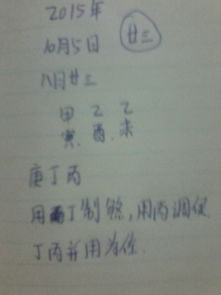 2015年
10月5日 廿三
八月廿三
甲 乙 乙
寅、酉、未
庚丁丙
用丁制煞,用丙调候
丁丙并用为佳.